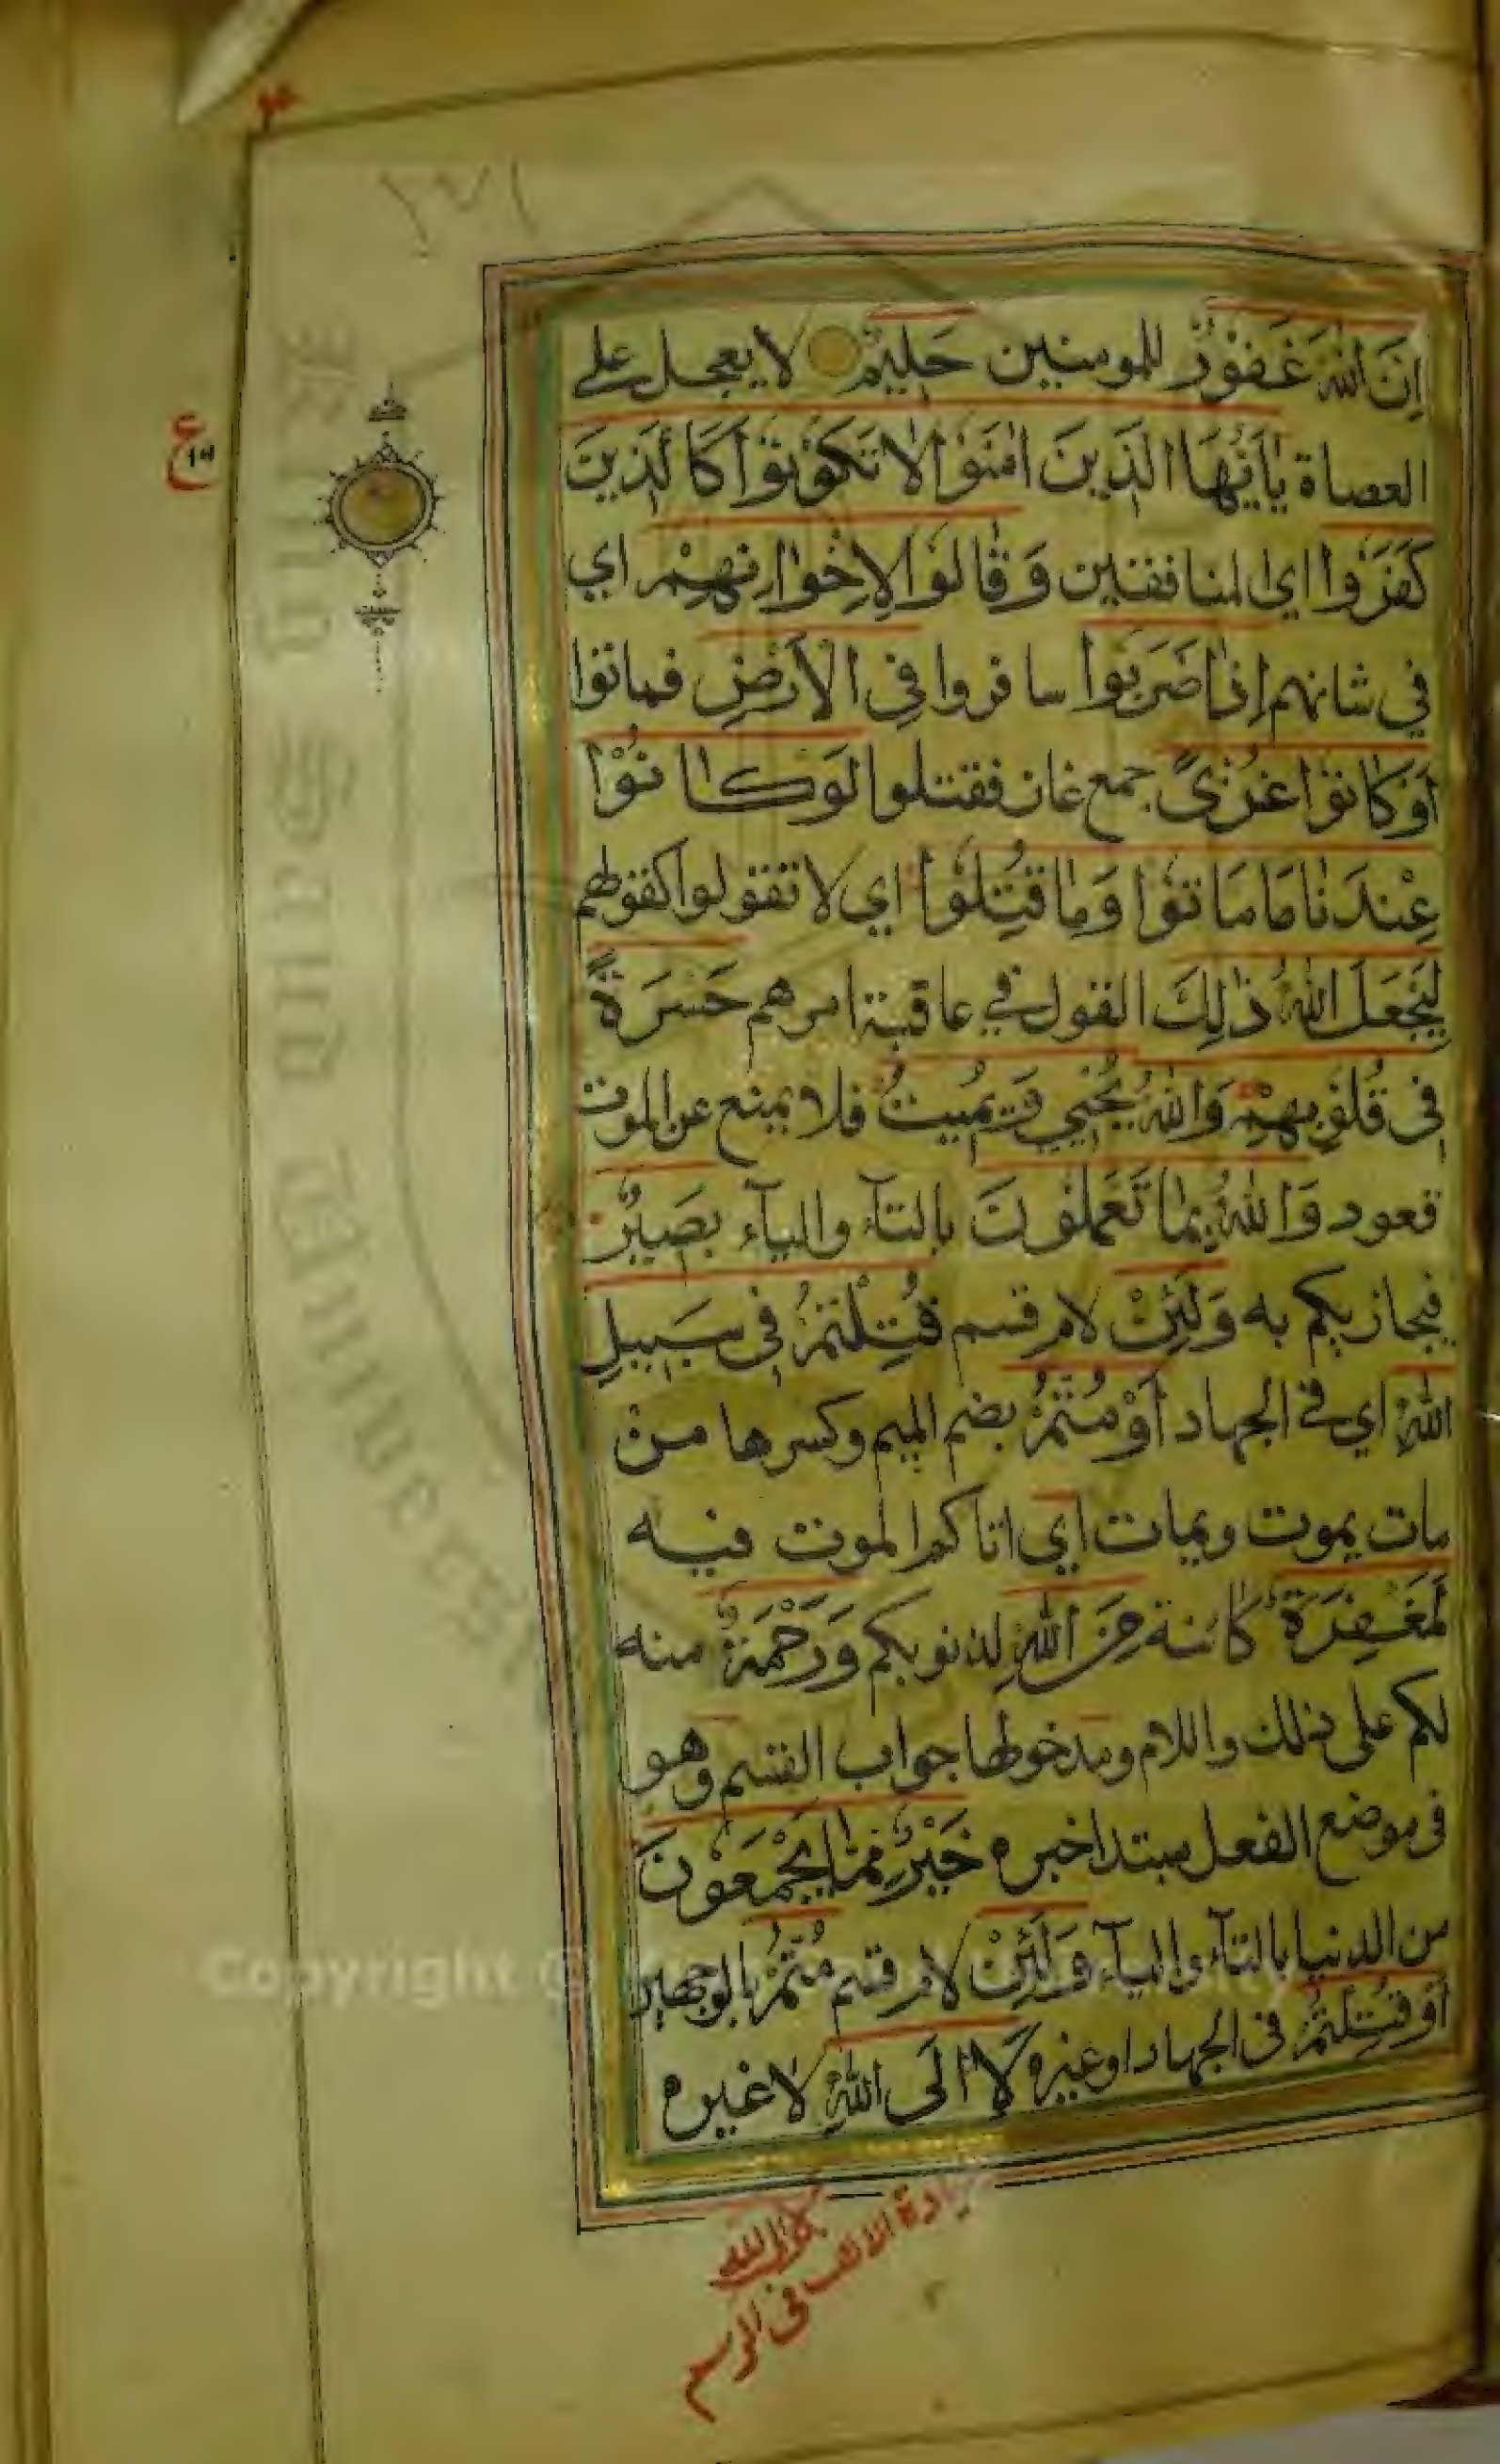 ١٣١
ع
١٦
اِنَّ اللّٰهَ غَفُوْرٌ للمومنين حَلِيْمٌ لا يعجل على
العصاة يٰاَيُّهَا الَّذِينَ اٰمَنُوْا لَا تَكُوْنُوْا كَالَّذِيْنَ
كَفَرُوا اي المنافقين وَقَالُوْا لِاِخْوَانِهِمْ اي
في شانهم اِذَا ضَرَبُوا سافروا فِي الْاَرْضِ فماتوا
اَوْ كَانُوْا غُزًّى جمع غاز فقتلوا لَوْ كَانُوْا
عِنْدَنَا مَا مَاتُوْا وَمَا قُتِلُوْا اي لا تقولوا كقولهم
لِيَجْعَلَ اللّٰهُ ذٰلِكَ القول في عاقبة امرهم حَسْرَةً
فِى قُلُوْبِهِمْ وَاللّٰهُ يُحْيِي وَيُمِيتُ فلا يمنع عن الموت
قعود وَاللّٰهُ بِمَا تَعْمَلُوْنَ بالتآء واليآء بَصِيْرٌ
فيجازيكم به وَلَئِنْ لام قسم قُتِلْتُمْ فِى سَبِيلِ
اللّٰهِ اي في الجهاد اَوْ مُتُّمْ بضم الميم وكسرها من
مات يموت ويمات اي اتاكم الموت فيه
لَمَغْفِرَةٌ كائنة مِنَ اللّٰهِ لذنوبكم وَرَحْمَةٌ منه
لكم على ذلك واللام ومدخولها جواب القسم وهو
فى موضع الفعل مبتدا خبره خَيْرٌ مِّمَّا يَجْمَعُونَ
من الدنيا بالتآء واليآء وَلَئِنْ لام قسم مُتُّمْ بالوجهين
اَوْ قُتِلْتُمْ فى الجهاد اوغيره لَا اِلَى اللّٰهِ لا غيره
زيادة الالف فى الرسم
لا الى الله
Copyright ©